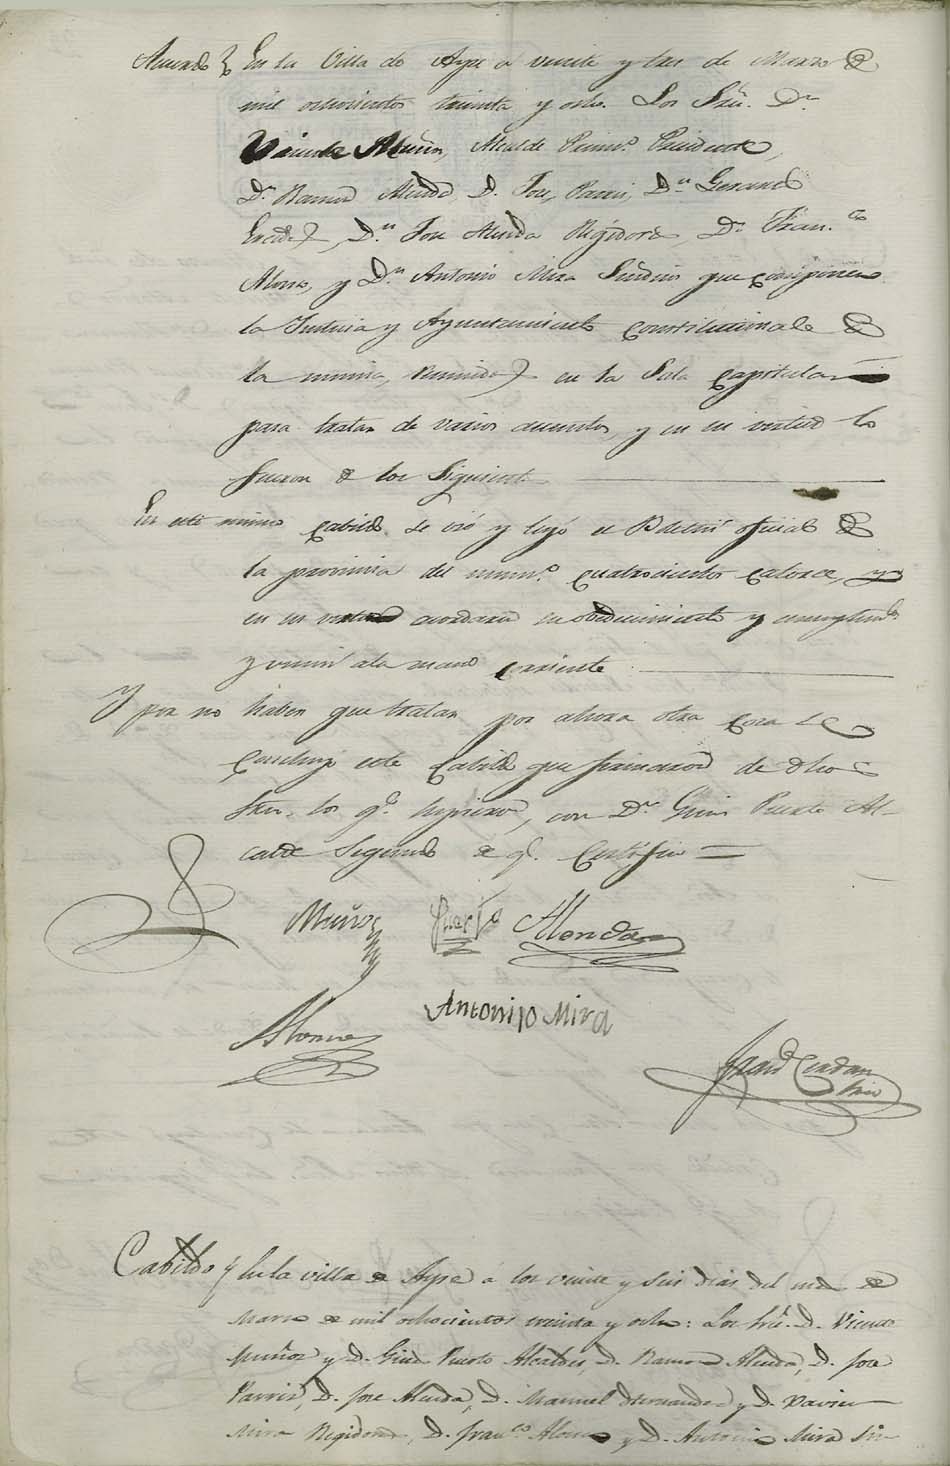 Acuerdo } En la Villa de Aspe a veinte y tres de Marzo de
mil ochocientos treinta y ocho. Los Sres. Dn
Vicente Muñoz, Alcalde Primo. Presidente,
Dn Ramon Alenda, D. Jose Pavia, Dn Gerardo
Dn Jose Alenda Regidores, Dn Franco
Alonso, y Dn Antonio Mira Sindico que componen
la Justicia y Ayuntamiento constitucional de
la misma, reunidos en la Sala Capitular
para tratar de varios asuntos, y en su virtud lo
fueron de los Siguientes
En este mismo Cabildo se vió y leyó el Boletin oficial de
la provincia del numo. cuatrocientos catorce, y
en su virtud acordaron su obedecimiento y cumplimto
y unir ala mano corriente
Y por no haber que tratar por ahora otra cosa se
concluyó este Cabildo que firmaron de dhos
Sres. los qe. supieron, con Dn Gines Puerto Al-
calde Segundo de qe. Certifico =
Muñoz Puerto Alenda
Alonso Antonijo Mira
Cabildo } En la villa de Aspe a los veinte y seis dias del mes de
Marzo de mil ochocientos treinta y ocho: Los Sres. D. Vicente
Muñoz y D. Gines Puerto Alcaldes, D. Ramon Alenda, D. Jose
Pavia, D. Jose Alenda, D. Manuel Hernandez y D. Xavier
Mira Regidores, D. Franco Alonso y D. Antonio Mira Sin-